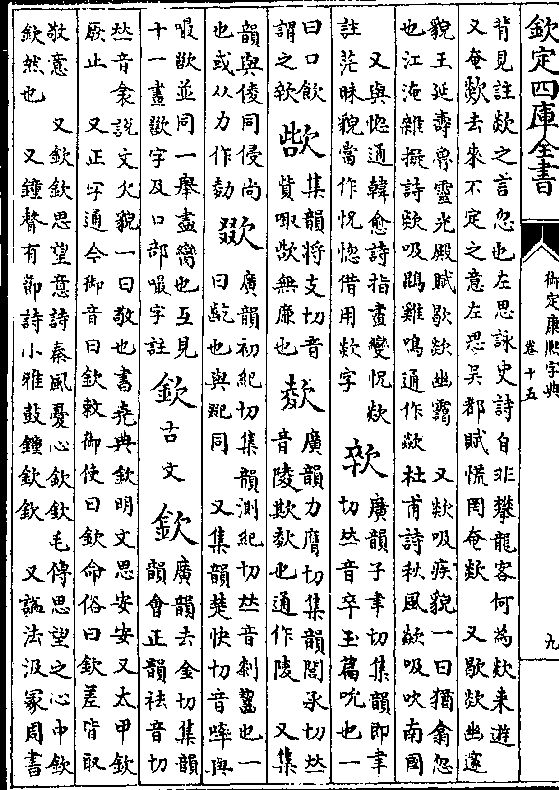 欽定四庫全書
御定康熙字典
卷十五
九
背見註欻之言忽也左思詠史詩自非攀龍客何為欻來遊
又奄欻去來不定之意左思吳都賦慌罔奄欻 又歇欻幽邃
貌王延壽魯靈光殿賦歇欻幽靄 又欻吸疾貌一曰猶翕忽
也江淹雜擬詩欻吸鵾雞鳴通作歘杜甫詩秋風歘吸吹南國
又與惚通韓愈詩指畫變怳欻
註茫昧貌當作怳惚借用欻字
廣韻子聿切集韻即聿
切𠀤音卒玉篇吮也一
曰口飲
謂之
集韻將支切音
貲歐欰無廉也
廣韻力膺切集韻閭承切𠀤
音陵欺欸也通作陵 又集
韻與倰同侵尚
也或从力作
廣韻初紀切集韻測紀切𠀤音刺齧也一
曰齔也與 同 又集韻楚快切音啐與
嘬歠並同一舉盡臠也互見
十一畫歠字及口部嘬字註
欽古文
欽廣韻去金切集韻
韻會正韻祛音切
𠀤音衾說文欠貌一曰敬也書堯典欽明文思安安又太甲欽
厥止 又正字通今御音曰欽敕御使曰欽命俗曰欽差皆取
敬意 又欽欽思望意詩秦風憂心欽欽毛傳思望之心中欽
欽然也 又鐘聲有節詩小雅鼓鐘欽欽 又諡法汲冢周書